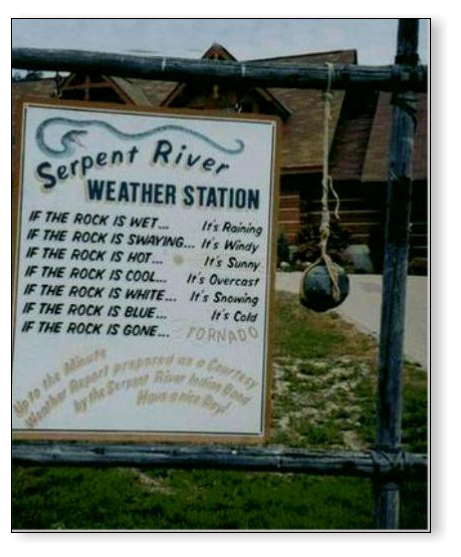 Serpent River
WEATHER STATION
IF THE ROCK IS WET... It's Raining
IF THE ROCK IS SWAYING... It's Windy
IF THE ROCK IS HOT... It's Sunny
IF THE ROCK IS COOL... It's Overcast
IF THE ROCK IS WHITE... It's Snowing
IF THE ROCK IS BLUE... It's Cold
IF THE ROCK IS GONE... TORNADO
Up to the Minute
Weather Report prepared as a Courtesy
by the Serpent River Indian Band
Have a nice Day!